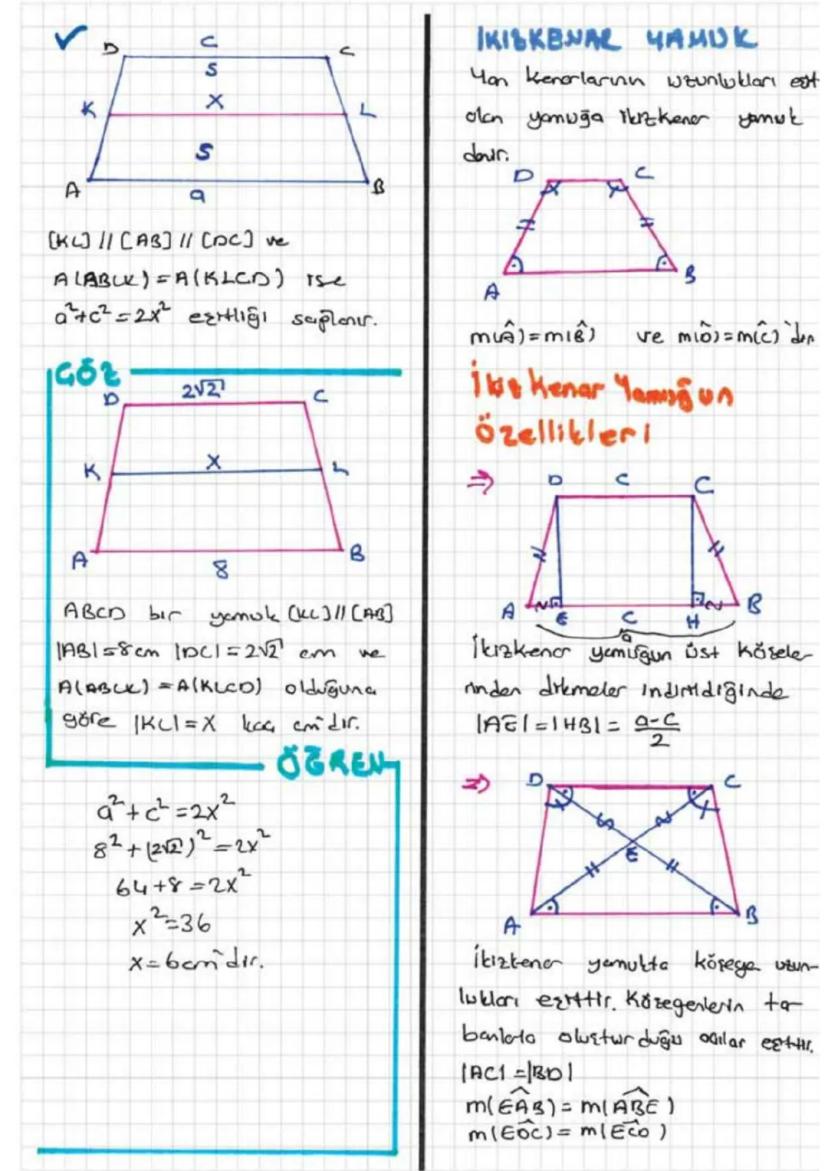 D C C
S
K X L
S
A a B
[KL] // [AB] // [DC] ve
A(ABLK) = A(KLCD) ise
a²+c²=2x² eşitliği sağlanır.
GÖZ
D 2√2 C
K X L
A 8 B
ABCD bir yamuk [KL] // [AB]
|AB|=8cm |DC|=2√2 cm ve
A(ABLK) = A(KLCD) olduğuna
göre |KL|=X kaç cm'dir.
ÖĞREN
a²+c²=2x²
8²+(2√2)²=2x²
64+8=2x²
x²=36
x=6cm'dir.
İKİZKENAR YAMUK
Yan kenarlarının uzunlukları eşit
olan yamuğa ikizkenar yamuk
denir.
D C
A B
m(Â)=m(B̂) ve m(D̂)=m(Ĉ)'dir
İkizkenar Yamuğun
Özellikleri
⇒ D C C
A E C H B
a
İkizkenar yamuğun üst köşele-
rinden dikmeler indirildiğinde
|AE|=|HB|= a-c/2
⇒ D C
E
A B
İkizkenar yamukta köşegen uzun-
lukları eşittir. Köşegenlerin ta-
banlarla oluşturduğu açılar eşittir.
|AC|=|BD|
m(EÂB)=m(ABE)
m(EDC)=m(ECD)